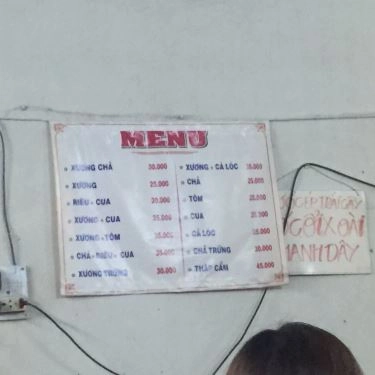 MENU
XƯƠNG CHẢ 30.000
XƯƠNG 25.000
RIÊU - CUA 30.000
XƯƠNG - CUA 35.000
XƯƠNG - TÔM 35.000
CHẢ - RIÊU - CUA 35.000
XƯƠNG TRỨNG 30.000
XƯƠNG - CÁ LÓC 35.000
CHẢ 25.000
TÔM
CUA
CÁ LÓC
CHẢ TRỨNG 30.000
THẬP CẨM 45.000
XOÀI
CHANH DÂY